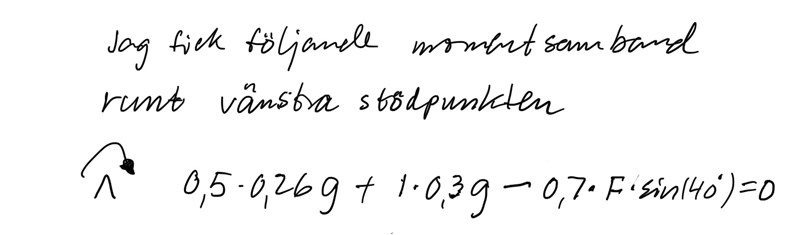 Jag fick följande momentsamband
runt vänstra stödpunkten
0,5·0,26g + 1·0,3g − 0,7·F·sin(40°)=0